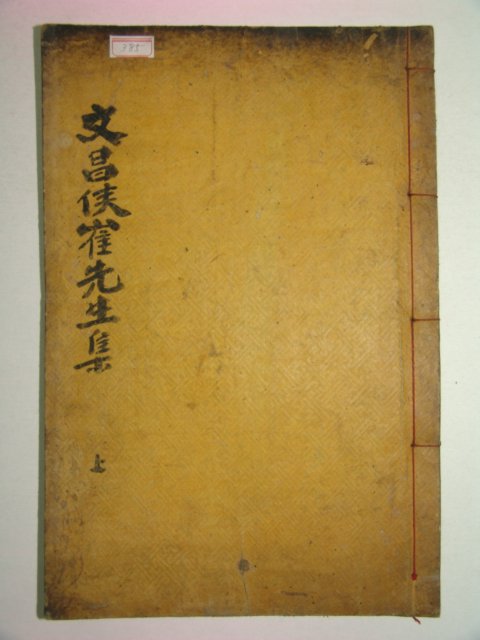 385
文昌侯崔先生集
上